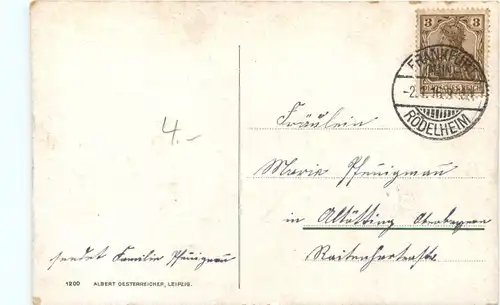 3
FRANKFURT
(MAIN)
RÖDELHEIM
4.-
Fräulein
Marie Pfennigmann
in Altötting Oberbayern
sendet Familie Pfennigmann
1200 ALBERT OESTERREICHER, LEIPZIG.